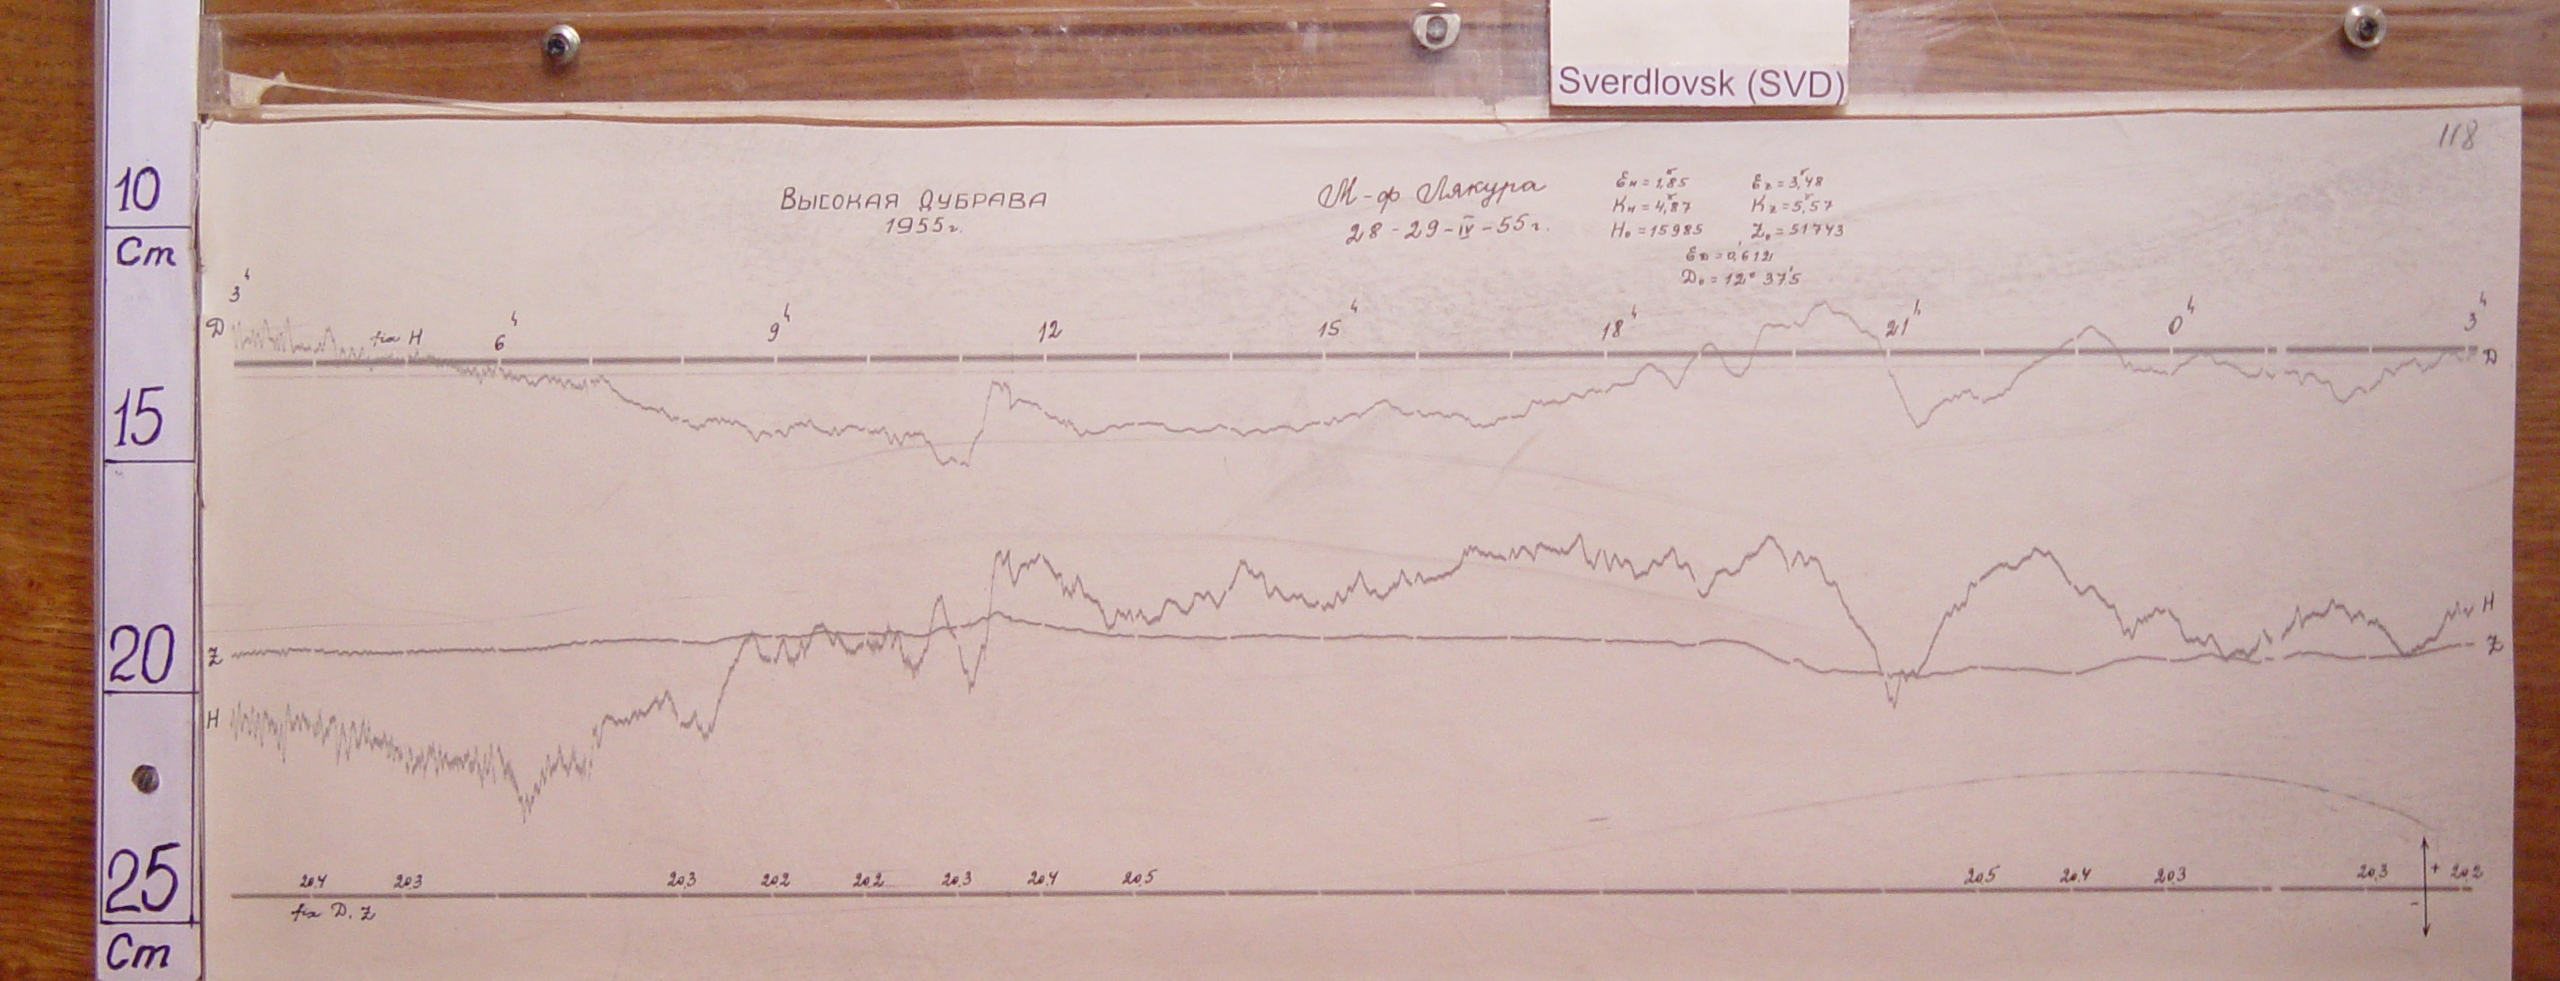 Sverdlovsk (SVD)
118
10
Cm
15
20
25
Cm
Высокая Дубрава
1955г.
М-ф Лякура
28-29-IV-55г.
Eн=1,85 Ez=3,48
Kн=4,87 Kz=5,57
H₀=15985 Z₀=51743
ED=0,612
D₀=12° 37,5
3ʰ
6ʰ 9ʰ 12 15ʰ 18ʰ 21ʰ 0ʰ 3ʰ
D fix H D
H
Z Z
H
20,4 20,3 20,3 20,2 20,2 20,3 20,4 20,5 20,5 20,4 20,3 20,3 + 20,2
fix D, Z -